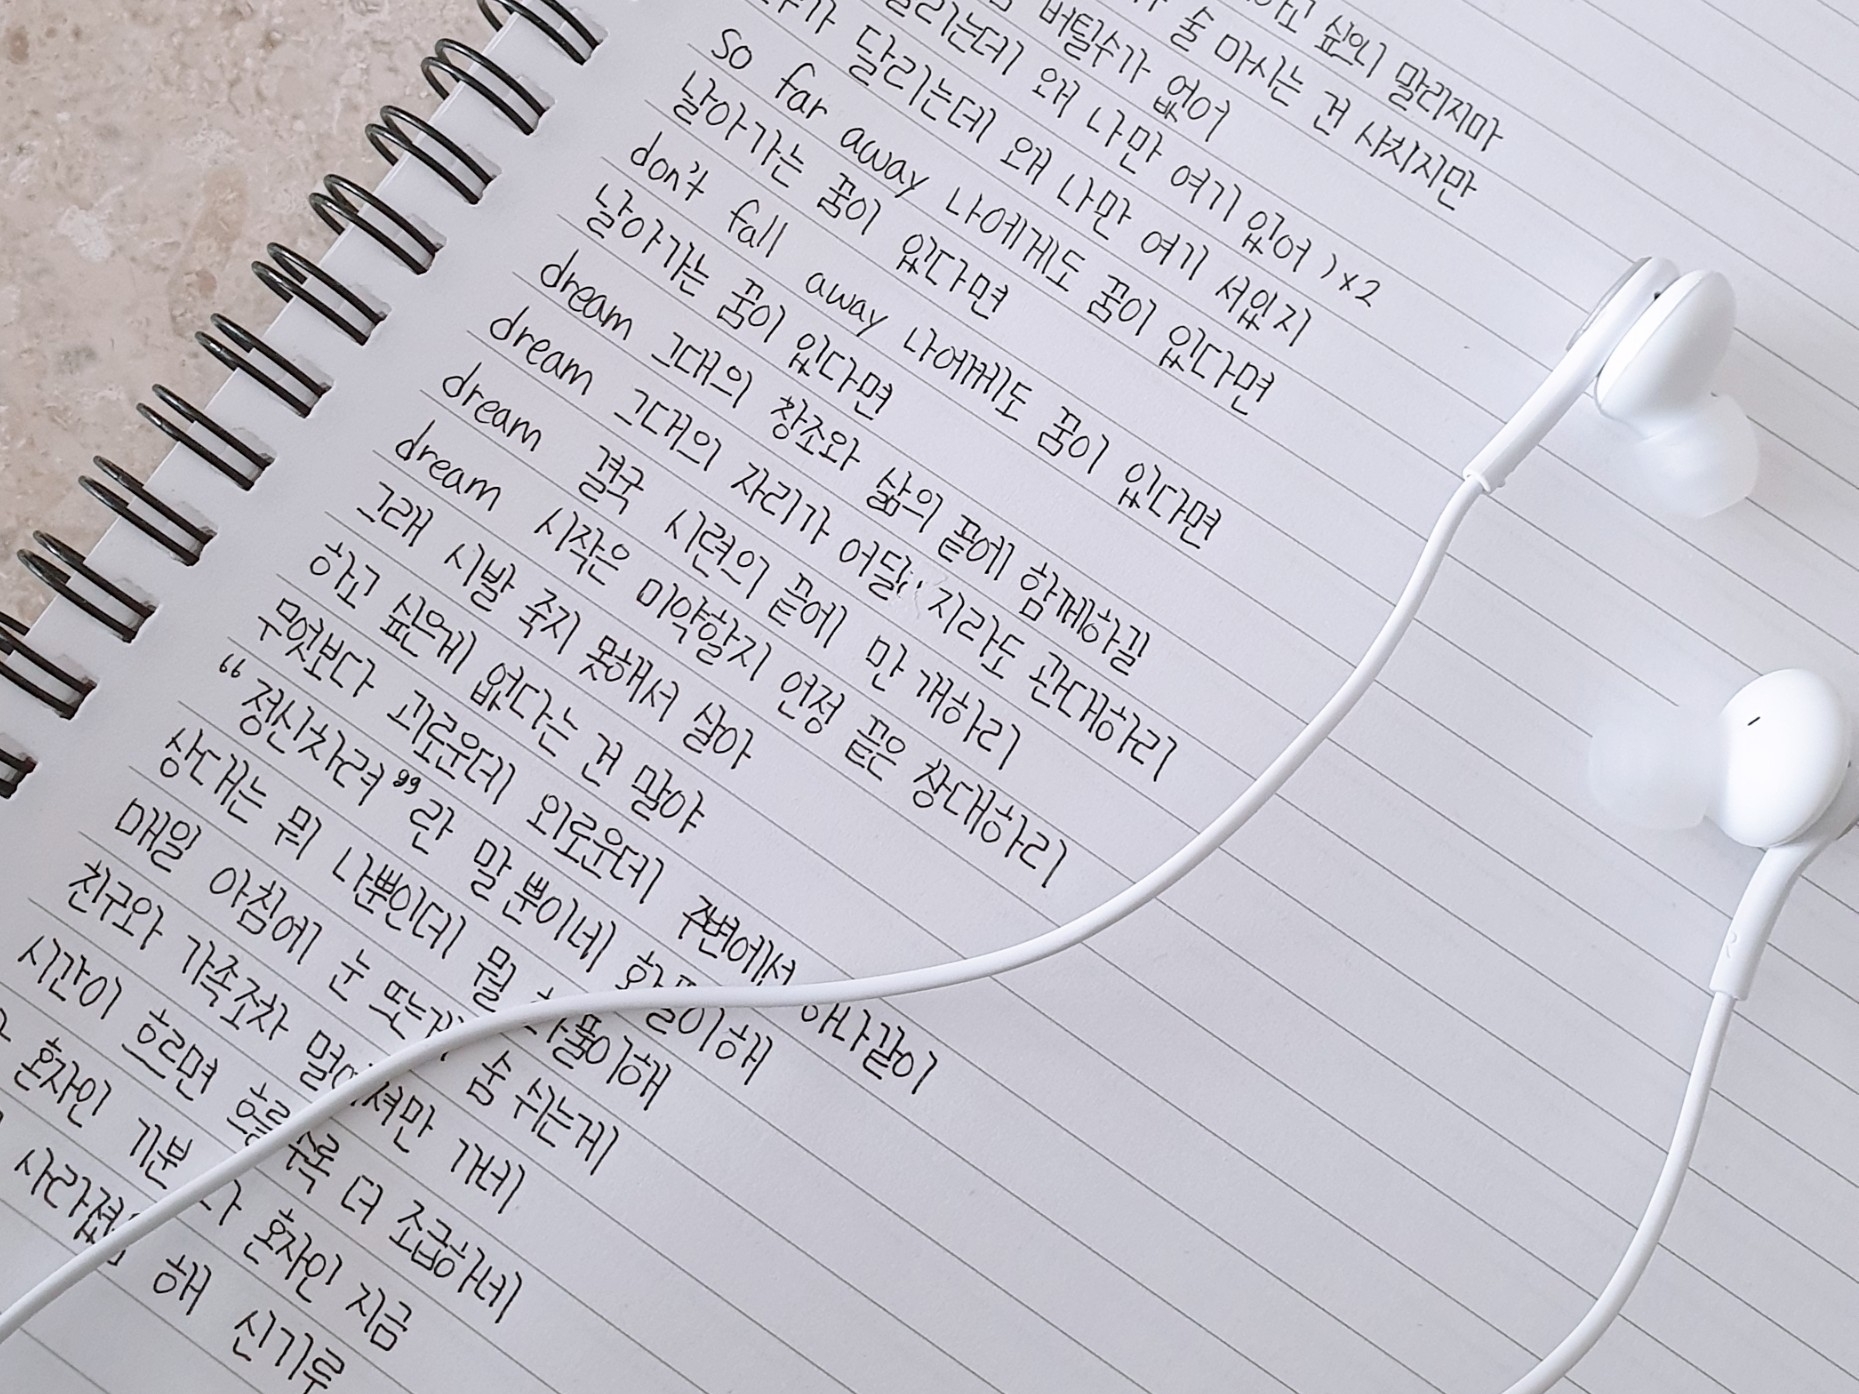 하고 싶으니 말리지마
술 마시는 건 사치지만
버틸수가 없어
달리는데 왜 나만 여기 있어 ) x2
달리는데 왜 나만 여기 서있지
so far away 나에게도 꿈이 있다면
날아가는 꿈이 있다면
don't fall away 나에께도 꿈이 있다면
날아가는 꿈이 있다면
dream 그대의 창조와 삶의 끝에 함께하길
dream 그대의 자리가 어딜 지라도 관대하리
dream 결국 시련의 끝에 만개하리
dream 시작은 미약할지 언정 끝은 창대하리
그래 시발 죽지 못해서 살아
하고 싶은게 없다는 건 말야
무엇보다 괴로운데 외로운데 주변에서 하나같이
"정신차려" 란 말 뿐이네 화풀이해
상대는 뭐 나뿐인데 뭘 화풀이해
매일 아침에 눈 뜨는게 숨 쉬는게
친구와 가족조차 멀어져만 가네
시간이 흐르면 흐를수록 더 조급하네
혼자인 기분 혼자인 지금
해 신기루